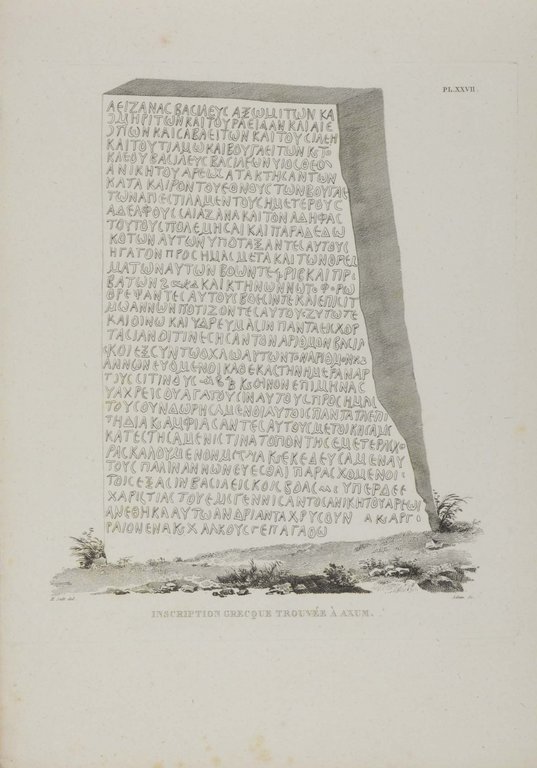 ΑΕΙΖΑΝΑϹ ΒΑϹΙΛΕΥϹ ΑΞΩΜΙΤΩΝ ΚΑ
ΟΜΗΡΙΤΩΝ ΚΑΙ ΤΟΥ ΡΑΕΙΔΑΝ ΚΑΙ ΑΙΕ
ΟΠΩΝ ΚΑΙ ϹΑΒΑΕΙΤΩΝ ΚΑΙ ΤΟΥ ϹΙΛΕΗ
ΚΑΙ ΤΟΥ ΤΙΑΜΩ ΚΑΙ ΒΟΥΓΑΕΙΤΩΝ
ΒΑϹΙΛΕΥϹ ΒΑϹΙΛΕΩΝ ΥΙΟϹ ΘΕΟΥ
ΑΝΙΚΗΤΟΥ ΑΡΕΩϹ ΑΤΑΚΤΗϹΑΝΤΩΝ
ΚΑΤΑ ΚΑΙΡΟΝ ΤΟΥ ΕΘΝΟΥϹ ΤΩΝ ΒΟΥΓΑΕ
ΤΩΝ ΑΠΕϹΤΙΛΑΜΕΝ ΤΟΥϹ ΗΜΕΤΕΡΟΥϹ
ΑΔΕΛΦΟΥϹ ϹΑΙΑΖΑΝΑ ΚΑΙ ΤΟΝ ΑΔΗΦΑϹ
ΤΟΥΤΟΥϹ ΠΟΛΕΜΗϹΑΙ ΚΑΙ ΠΑΡΑΔΕΔΩ
ΚΟΤΩΝ ΑΥΤΩΝ ΥΠΟΤΑΞΑΝΤΕϹ ΑΥΤΟΥϹ
ΗΓΑΓΟΝ ΠΡΟϹ ΗΜΑϹ ΜΕΤΑ ΚΑΙ ΤΩΝ ΘΡΕΜ
ΜΑΤΩΝ ΑΥΤΩΝ ΒΟΩΝ ΤΕ ΚΑΙ ΠΡΟ
ΒΑΤΩΝ ΚΑΙ ΚΤΗΝΩΝ
ΘΡΕΨΑΝΤΕϹ ΑΥΤΟΥϹ ΒΟΕϹΙΝ ΤΕ ΚΑΙ ΕΠΙϹΙΤ
ΙϹΜΩ ΑΝΝΩΝ ΠΟΤΙΖΟΝΤΕϹ ΑΥΤΟΥϹ ΖΥΤΩ ΤΕ
ΚΑΙ ΟΙΝΩ ΚΑΙ ΥΔΡΕΥΜΑϹΙΝ ΠΑΝΤΑ ΕΙϹ ΧΟΡ
ΤΑϹΙΑΝ ΟΙΤΙΝΕϹ ΗϹΑΝ ΤΟΝ ΑΡΙΘΜΟΝ ΒΑϹΙΛ
ΙϹΚΟΙ ΕΞ ϹΥΝ ΤΩ ΟΧΛΩ ΑΥΤΩΝ ΤΟΝ ΑΡΙΘΜΟΝ
ΑΝΝΩΝΕΥΟΜΕΝΟΙ ΚΑΘ ΕΚΑϹΤΗΝ ΗΜΕΡΑΝ ΑΡ
ΤΟΥϹ ϹΙΤΙΝΟΥϹ ΟΙΝΟΝ ΕΠΙ ΜΗΝΑϹ
ΑΧΡΕΙϹ ΟΥ ΑΓΑΓΟΥϹΙΝ ΑΥΤΟΥϹ ΠΡΟϹ ΗΜΑϹ
ΤΟΥϹ ΟΥΝ ΔΩΡΗϹΑΜΕΝΟΙ ΑΥΤΟΙϹ ΠΑΝΤΑ ΤΑ ΕΠΙ
ΤΗΔΙΑ ΑΜΦΙΑϹΑΝΤΕϹ ΑΥΤΟΥϹ ΜΕΤΟΙΚΗϹΑΜΕ
ΚΑΤΕϹΤΗϹΑΜΕΝ ΙϹ ΤΙΝΑ ΤΟΠΟΝ ΤΗϹ ΗΜΕΤΕΡΑϹ ΧΩ
ΡΑϹ ΚΑΛΟΥΜΕΝΟΝ ΕΚΕΛΕΥϹΑΜΕΝ ΑΥ
ΤΟΥϹ ΠΑΛΙΝ ΑΝΝΩΝΕΥΕϹΘΑΙ ΠΑΡΑϹΧΟΜΕΝΟΙ
ΤΟΙϹ ΕΞΑϹΙΝ ΒΑϹΙΛΕΙϹΚΟΙϹ ΒΟΑϹ ΥΠΕΡ ΔΕ Ε
ΧΑΡΙϹΤΙΑϹ ΤΟΥ ΕΜΕ ΓΕΝΝΗϹΑΝΤΟϹ ΑΝΙΚΗΤΟΥ ΑΡΕΩϹ
ΑΝΕΘΗΚΑ ΑΥΤΩ ΑΝΔΡΙΑΝΤΑ ΧΡΥϹΟΥΝ Α ΚΑΙ ΑΡΓΥ
ΡΑΙΟΝ ΕΝΑ ΧΑΛΚΟΥϹ Γ ΕΠ ΑΓΑΘΩ
PL. XXVII.
H. Salt del.
Adam sc.
INSCRIPTION GRECQUE TROUVÉE À AXUM.